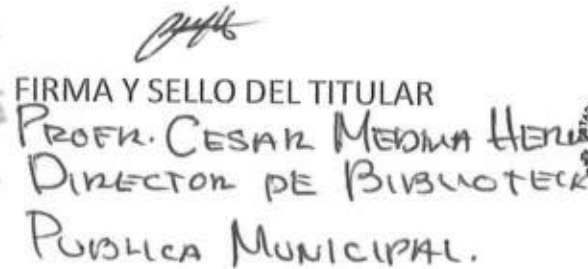 FIRMA Y SELLO DEL TITULAR
PROFR. CESAR MEDINA
DIRECTOR DE BIBLIOTECA
PUBLICA MUNICIPAL.